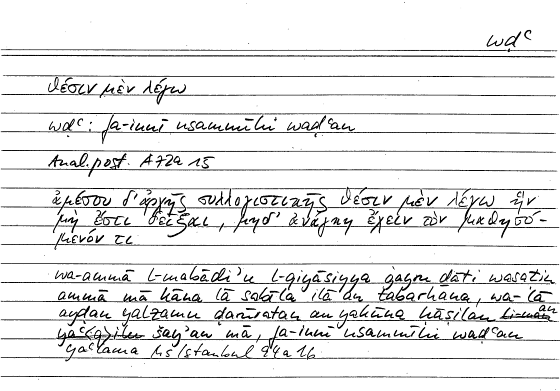 wḍʿ
θέσιν μὲν λέγω
wḍʿ: fa-innī usammīhi waḍʿan
Anal. post. A72a 15
ἀμέσου δ' ἀρχῆς συλλογιστικῆς θέσιν μὲν λέγω ἣν
μὴ ἔστι δεῖξαι, μηδ' ἀνάγκη ἔχειν τὸν μαθησό-
μενόν τι
wa-ammā l-mabādiʾu l-qiyāsiyya ġayru ḏāti wasaṭin
ammā mā kāna lā sabīla ilā an tabarhana, wa-lā
ayḍan yalzamu ḍarūratan an yakūna ḥāṣilan an
šayʾan mā, fa-innī usammīhi waḍʿan
yaʿlama Ms Istanbul 99a 16